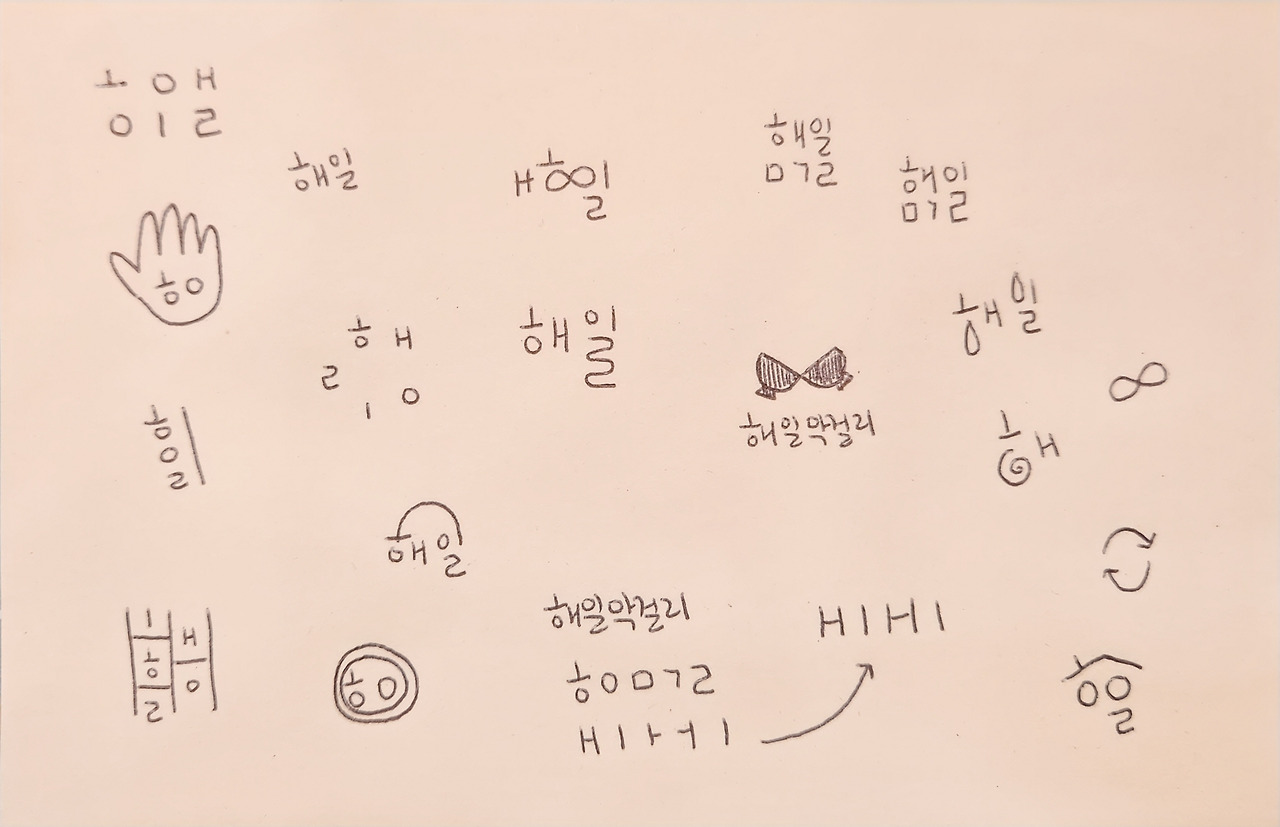 ㅎㅇㅐ
ㅇㅣㄹ
해일
해일
해일
ㅁㄱㄹ
해일
ㅁㄱㄹ
ㅎㅇ
ㅎㅐ
ㄹ
ㅣㅇ
해일
해일
해일막걸리
ㅎㅐ
ㅎㅇㄹㅣ
해일
해일막걸리
ㅎㅇㅁㄱㄹ
ㅐㅣㅏㅓㅣ
HIHI
ㅎㅇ
ㅎㅇㄹ